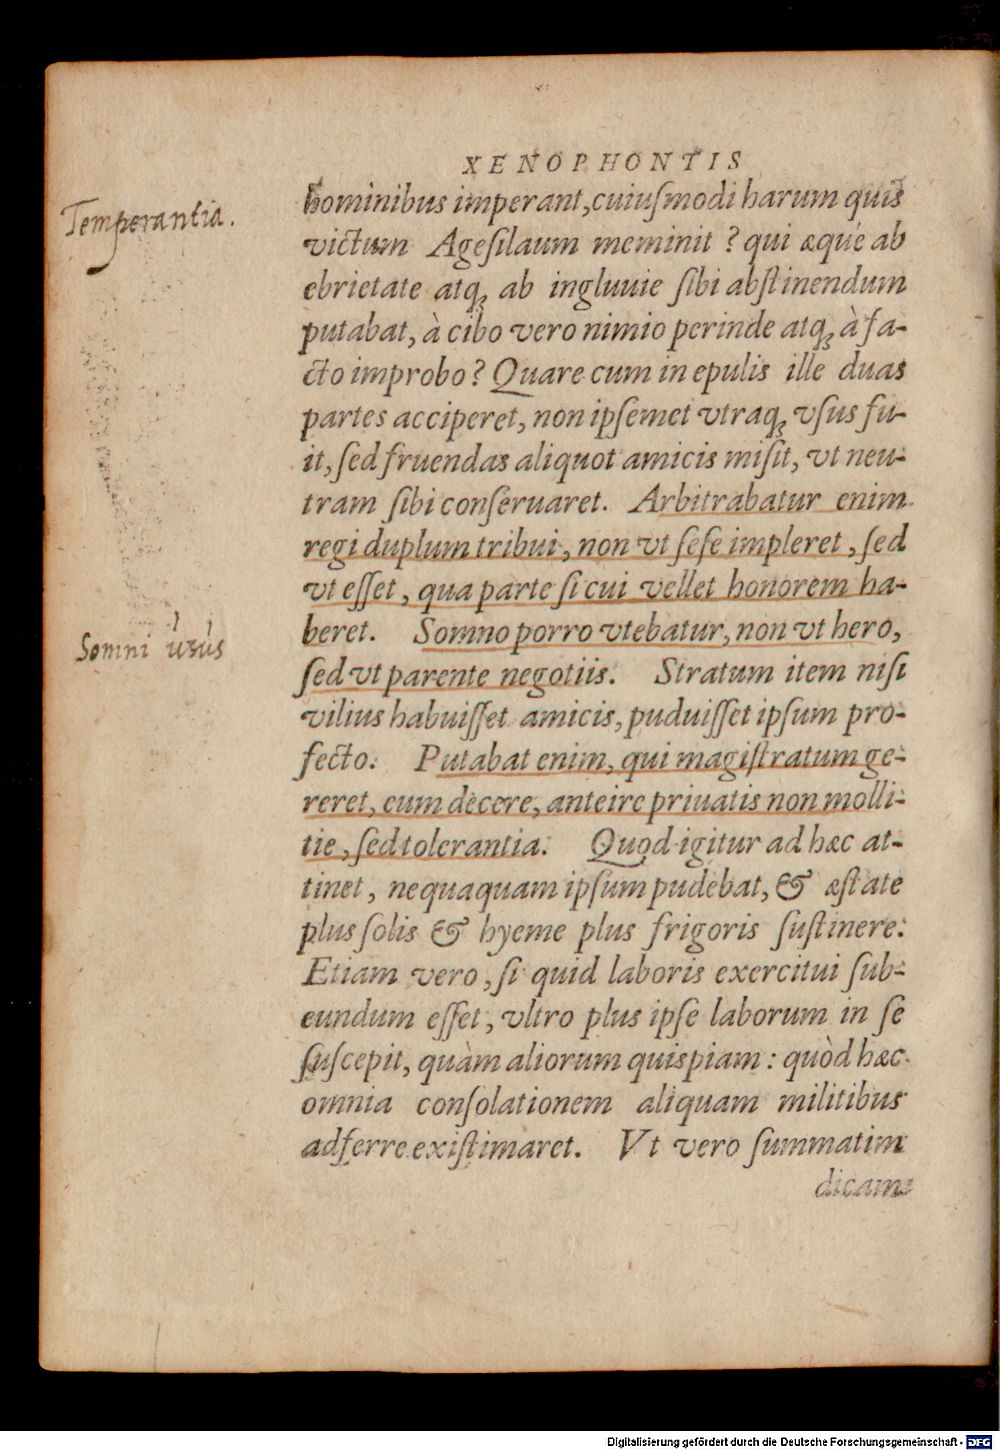 XENOPHONTIS
hominibus imperant, cuiuſmodi harum quis
Temperantia.
victum Ageſilaum meminit? qui æque ab
ebrietate atqꝫ ab ingluuie ſibi abſtinendum
putabat, à cibo vero nimio perinde atqꝫ à fa-
cto improbo? Quare cum in epulis ille duas
partes acciperet, non ipſemet vtraqꝫ vſus fu-
it, ſed fruendas aliquot amicis miſit, vt neu-
tram ſibi conſeruaret. Arbitrabatur enim
regi duplum tribui, non vt ſeſe impleret, ſed
vt eſſet, qua parte ſi cui vellet honorem ha-
beret. Somno porro vtebatur, non vt hero,
Somni usus
ſed vt parente negotiis. Stratum item niſi
vilius habuiſſet amicis, puduiſſet ipſum pro-
fecto. Putabat enim, qui magiſtratum ge-
reret, eum decere, anteire priuatis non molli-
tie, ſed tolerantia. Quod igitur ad hæc at-
tinet, nequaquam ipſum pudebat, & æſtate
plus ſolis & hyeme plus frigoris ſuſtinere.
Etiam vero, ſi quid laboris exercitui ſub-
eundum eſſet, vltro plus ipſe laborum in ſe
ſuſcepit, quàm aliorum quispiam: quòd hæc
omnia conſolationem aliquam militibus
adferre exiſtimaret. Vt vero ſummatim
dicam
Digitalisierung gefördert durch die Deutsche Forschungsgemeinschaft - DFG